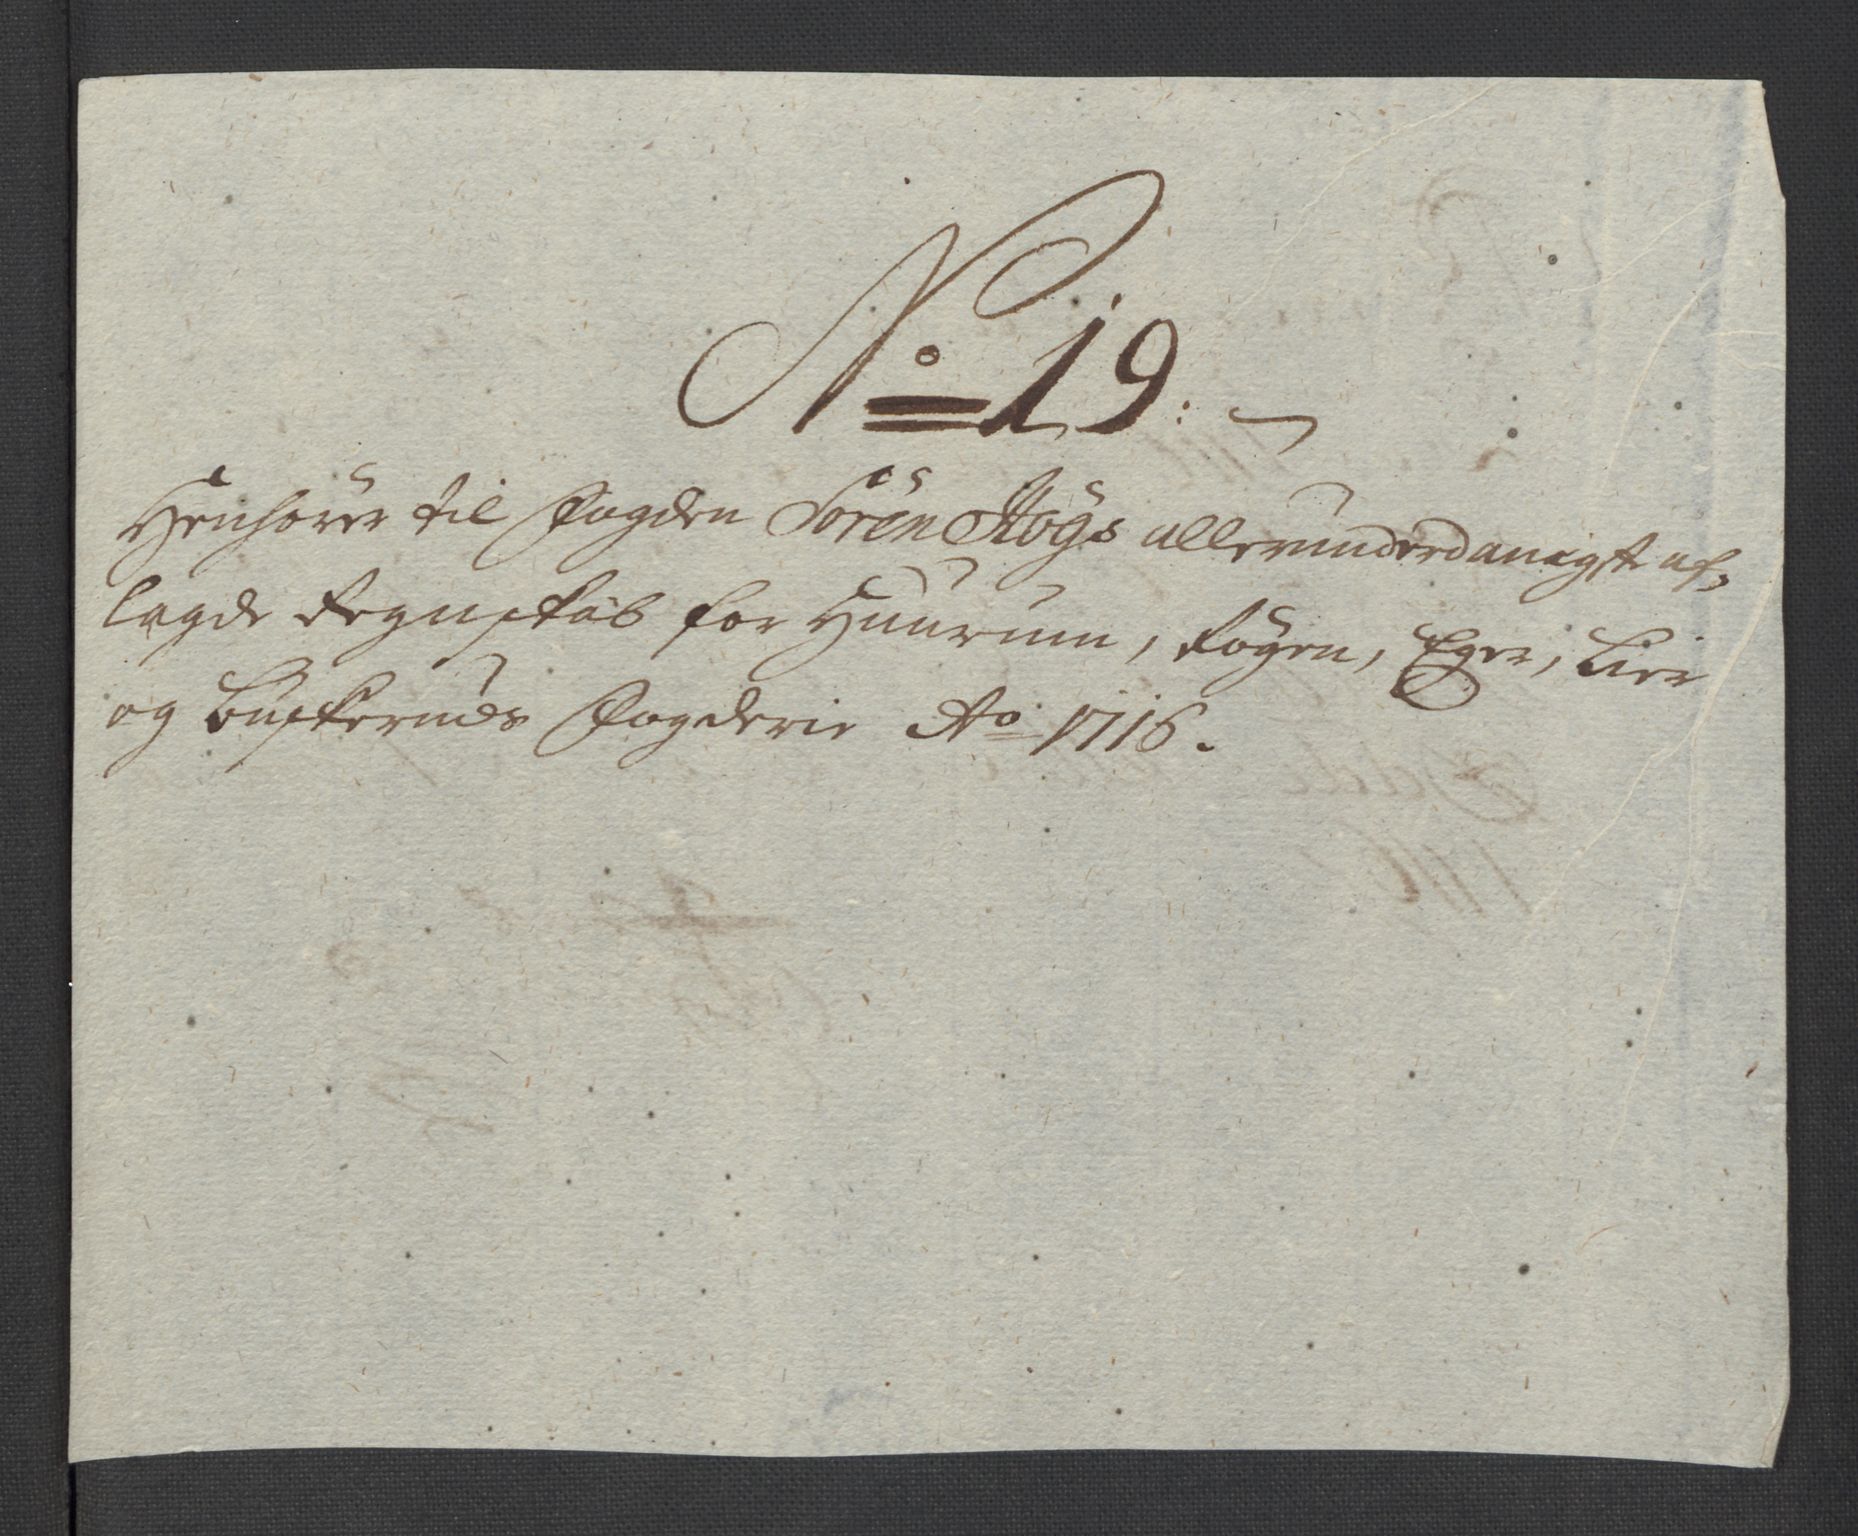 No 19.
Henhörer til Fogden Sören Høgs allerunderdanigst af-
lagde Regnskab for Huurum, Røgen, Eger, Lier
og Buskeruds Fogderie Ao 1716.